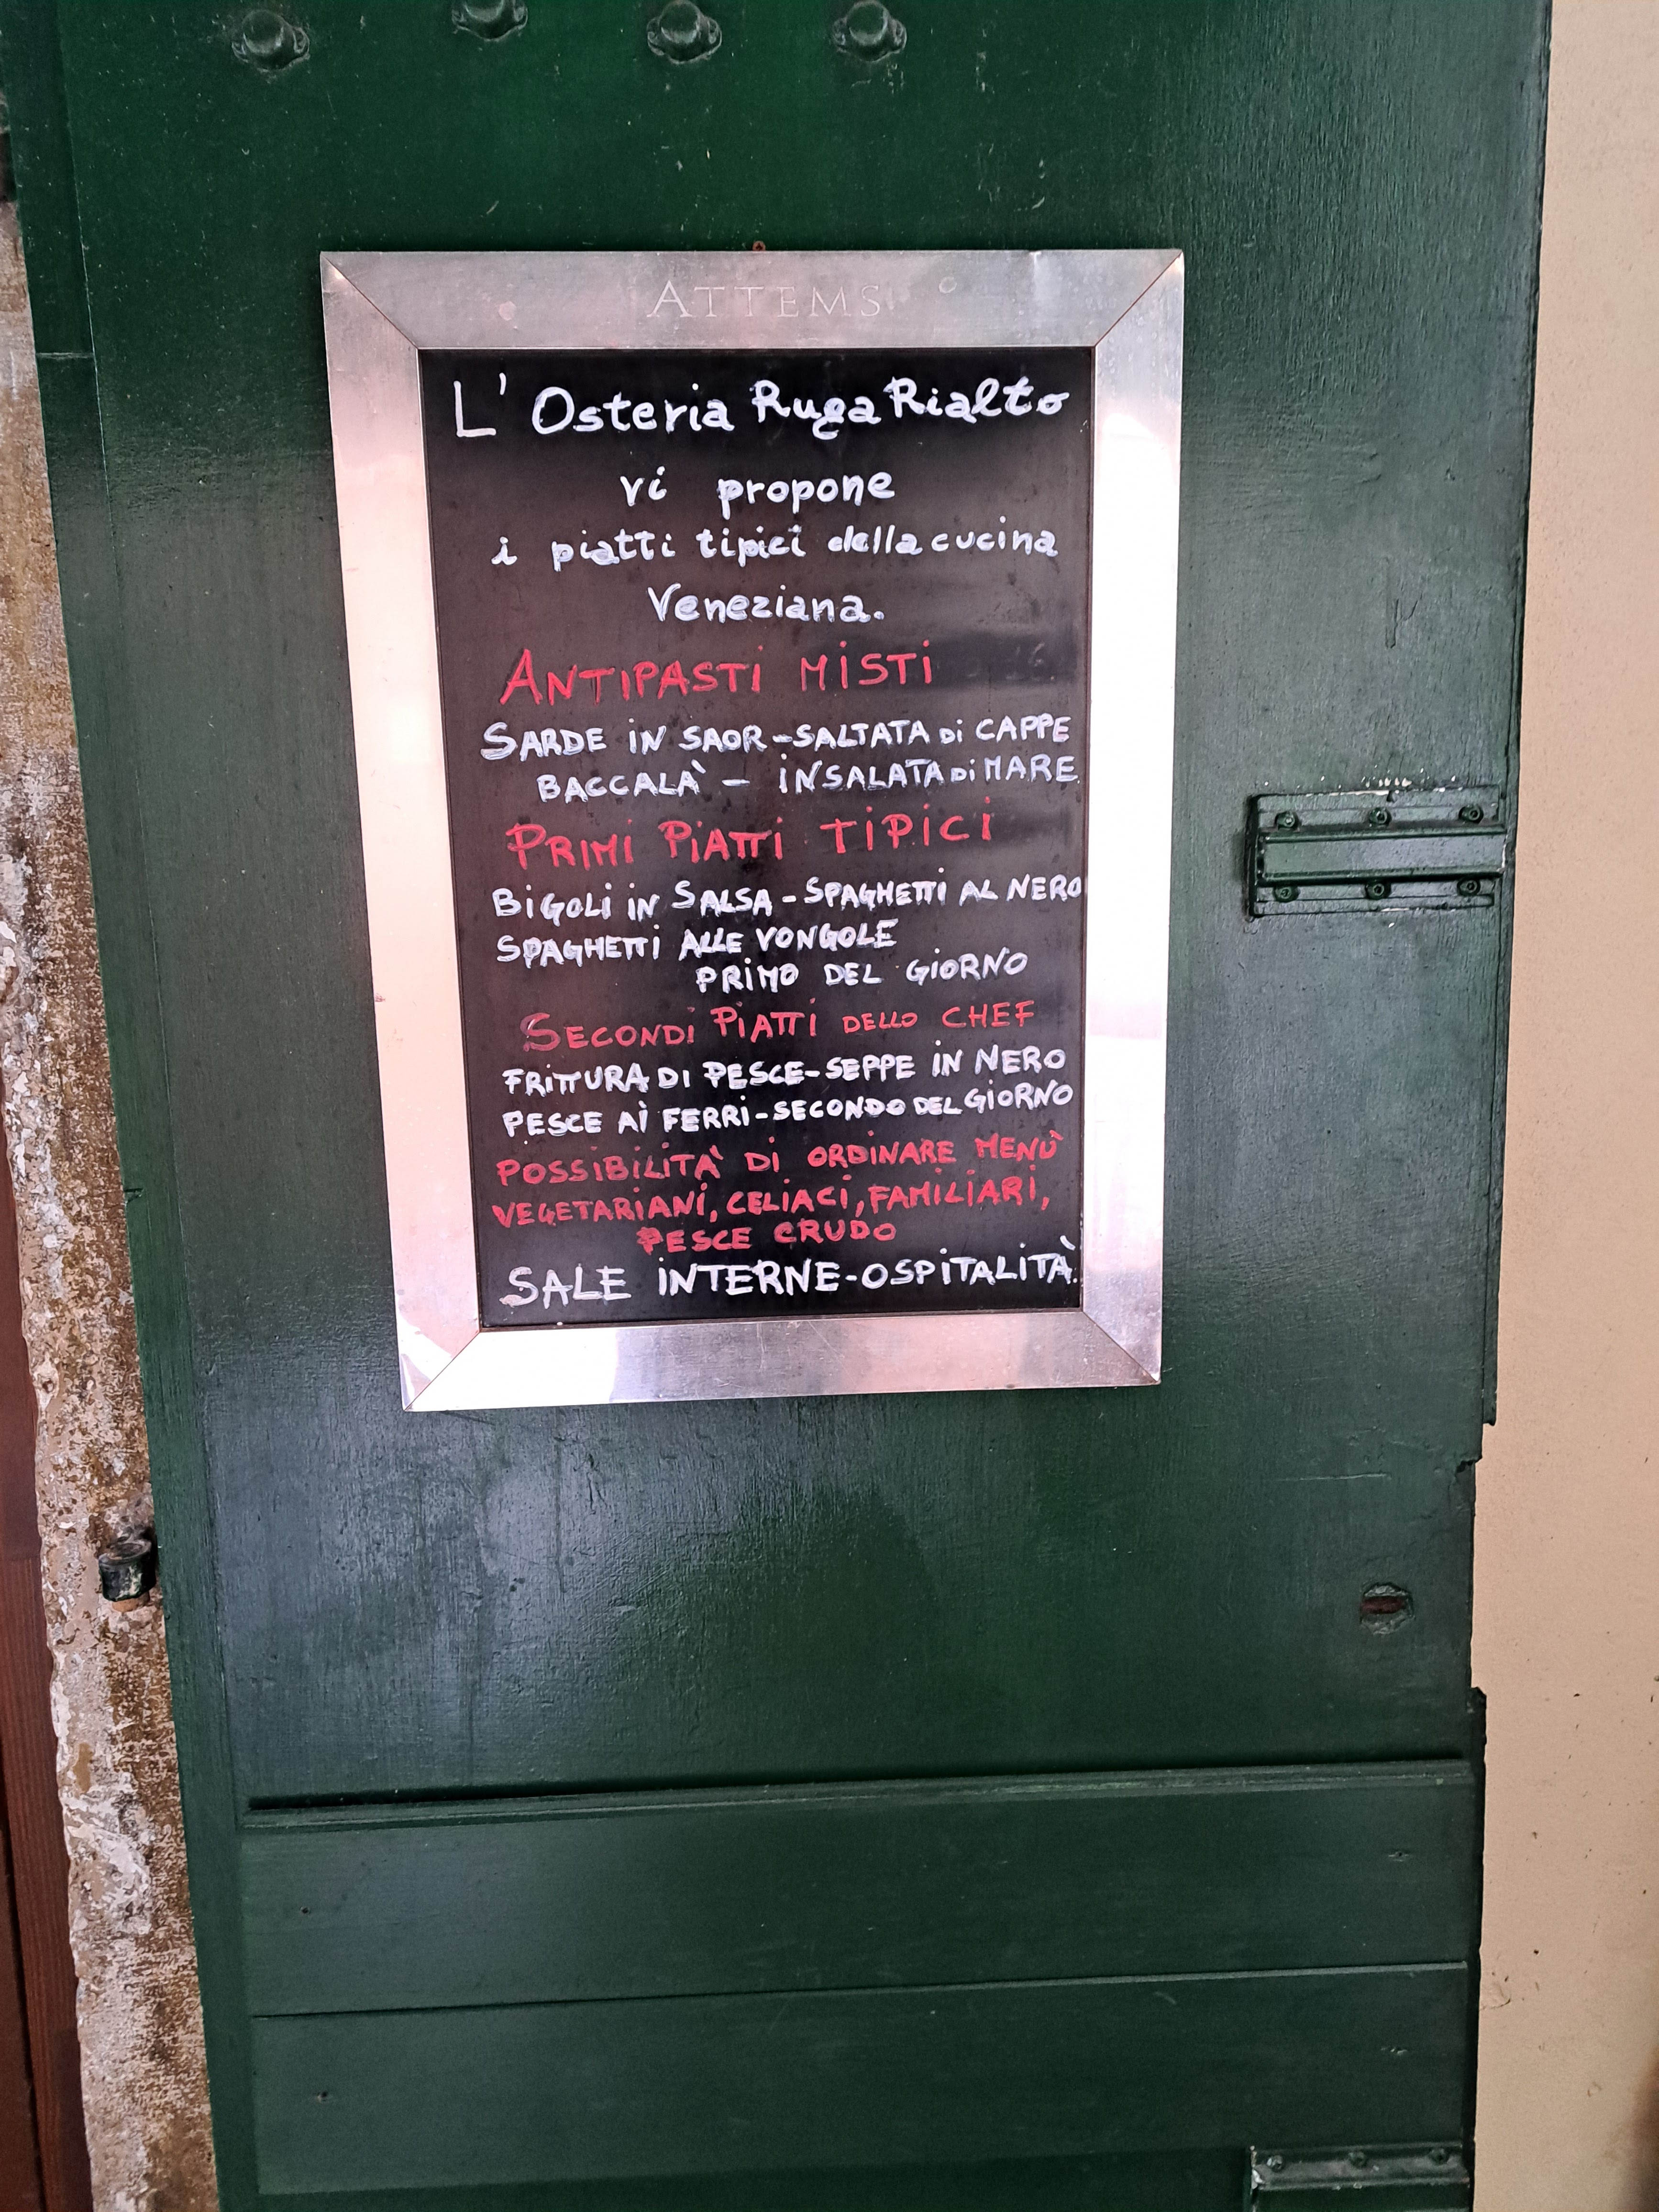 ATTEMS
L'Osteria Ruga Rialto
vi propone
i piatti tipici della cucina
Veneziana.
ANTIPASTI MISTI
SARDE IN SAOR-SALTATA Di CAPPE
BACCALÀ - INSALATA Di MARE
PRIMI PIATTI TIPICI
BIGOLI IN SALSA - SPAGHETTI AL NERO
SPAGHETTI ALLE VONGOLE
PRIMO DEL GIORNO
SECONDI PIATTI DELLO CHEF
FRITTURA DI PESCE-SEPPE IN NERO
PESCE AI FERRI-SECONDO DEL GIORNO
POSSIBILITÀ DI ORDINARE MENÙ
VEGETARIANI, CELIACI, FAMILIARI,
PESCE CRUDO
SALE INTERNE-OSPITALITÀ